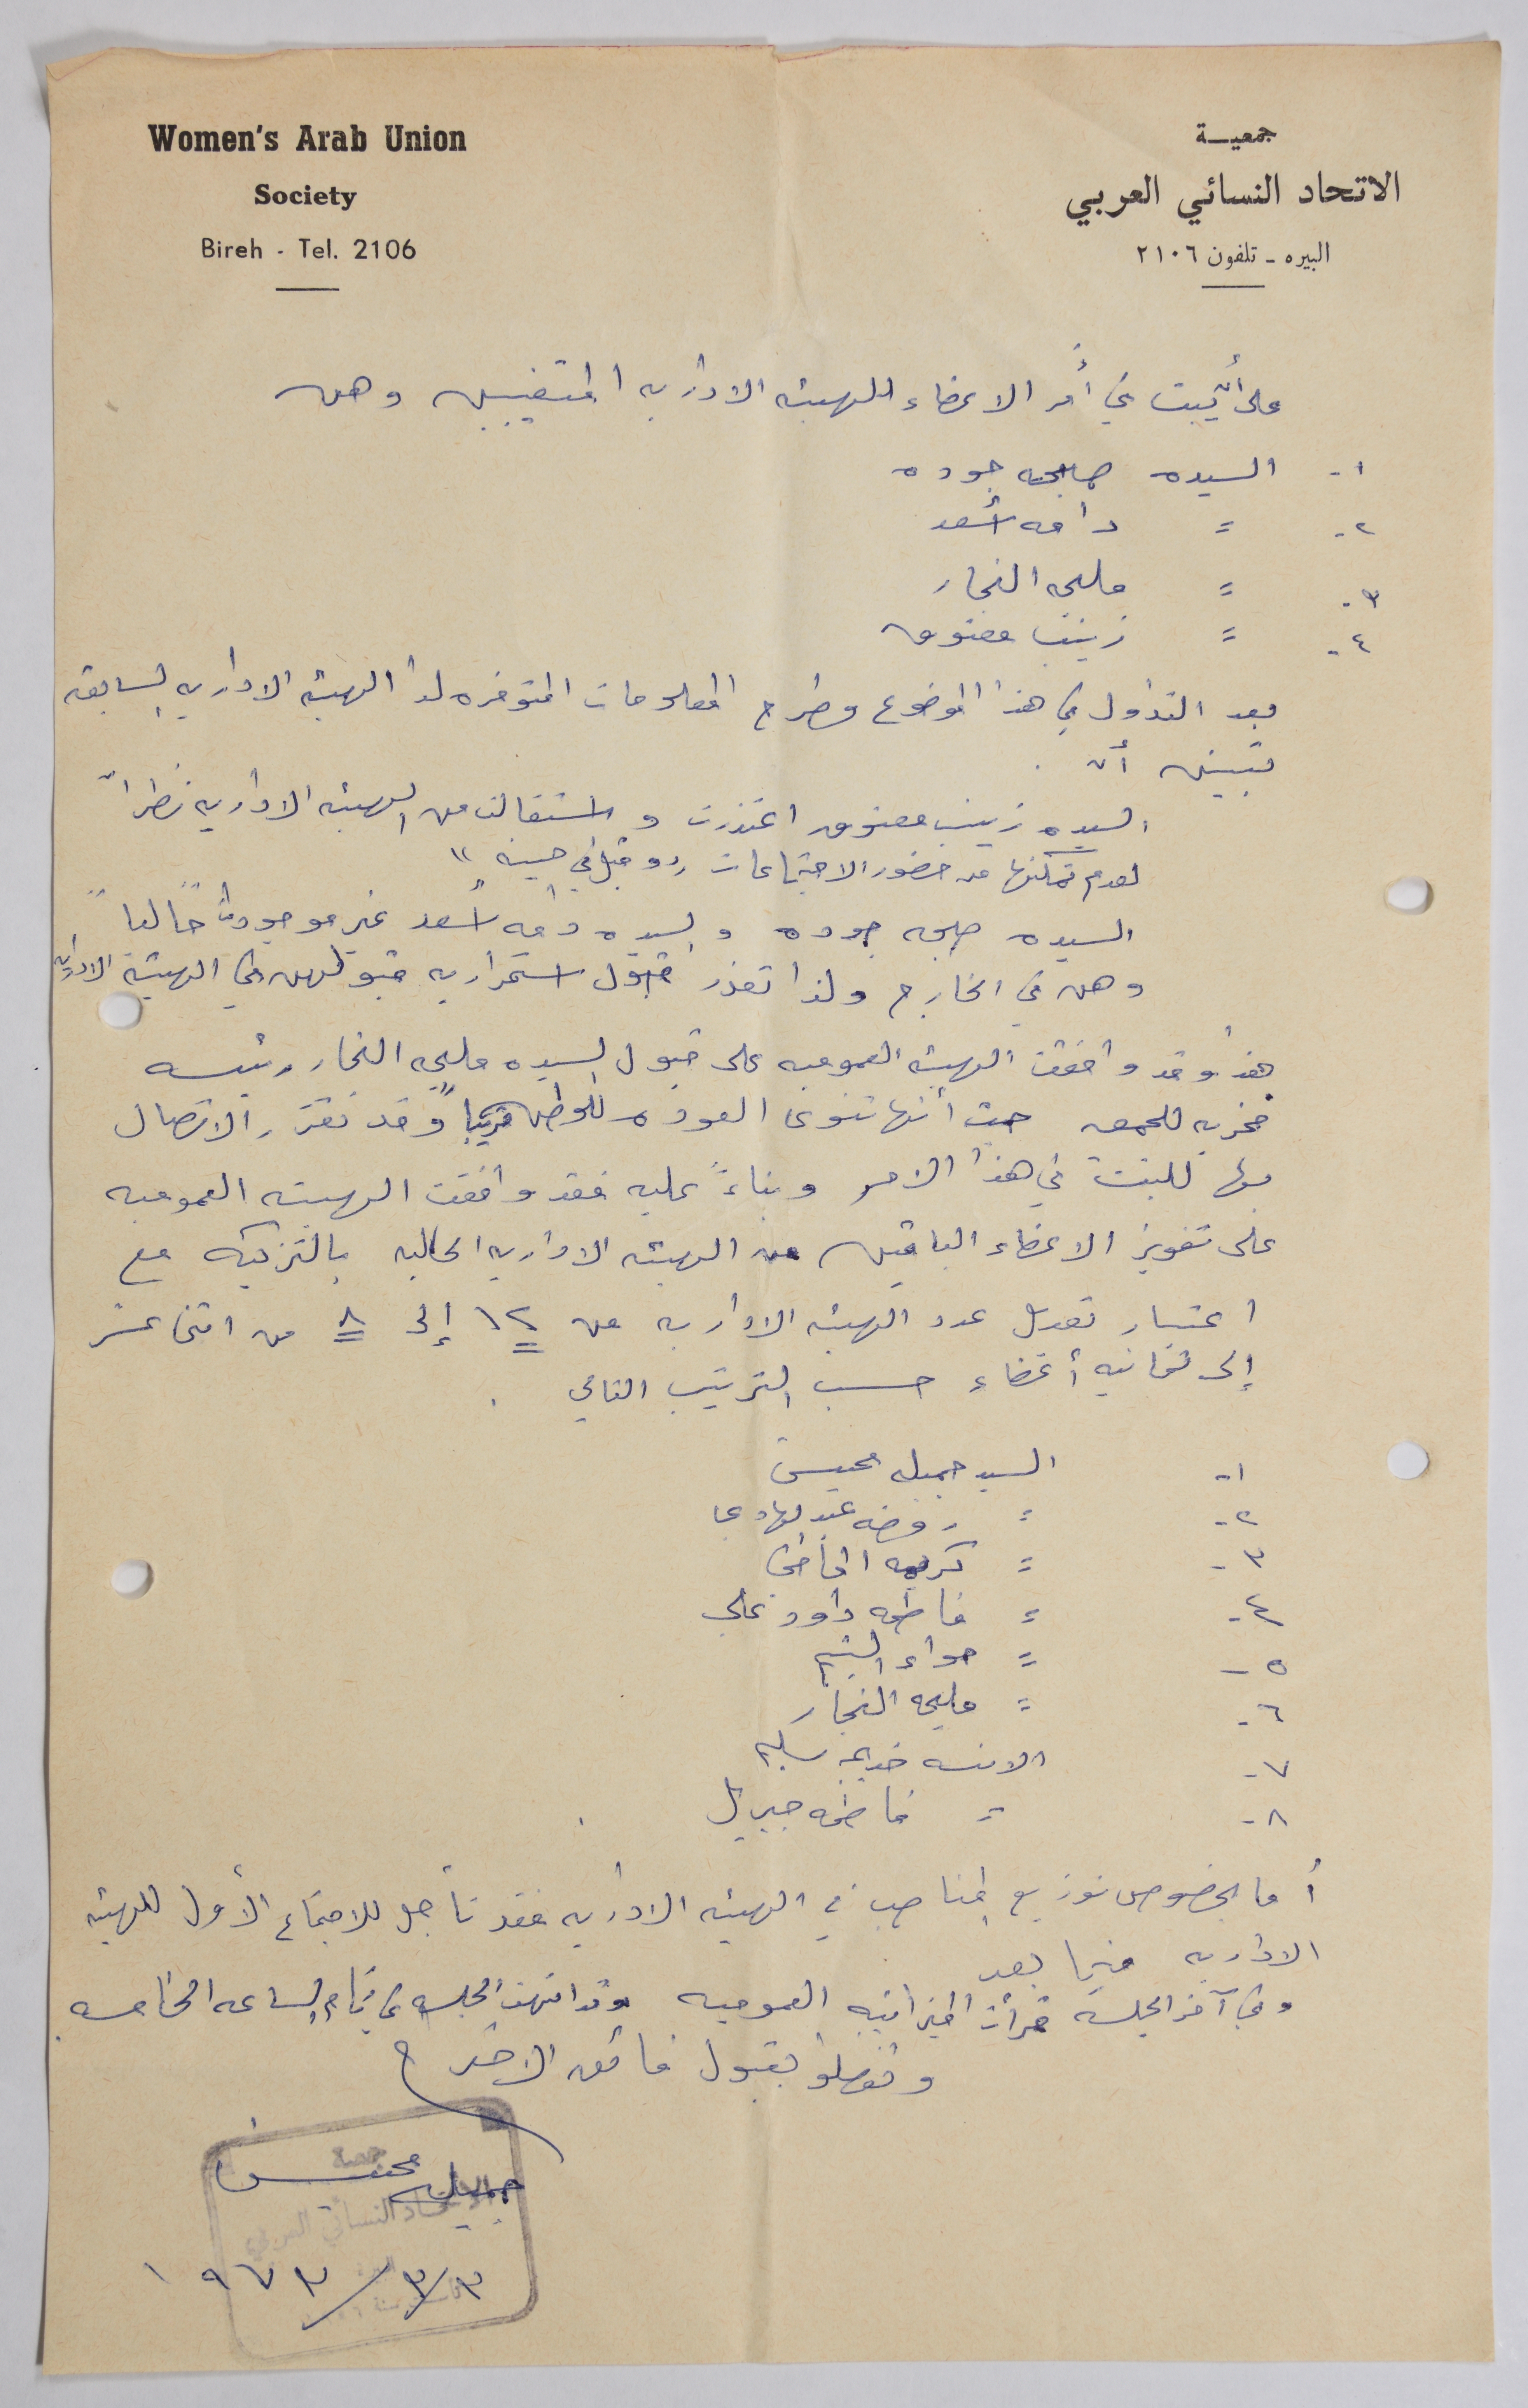 Women's Arab Union
Society
Bireh - Tel. 2106
جمعيـــة
الاتحاد النسائي العربي
البيره - تلفون ٢١٠٦
على أن يبت في أمر الاعضاء للهيئه الاداريه المتغيبين وهن
١- السيده صبحه جوده
٢- = دامه أسعد
٣- = مليحه النجار
٤- = زينب معتوق
وبعد التداول في هذا الموضوع وطرح المعلومات المتوفره لدا الهيئه الاداريه السابقه
تبين أن .
السيده زينب معتوق اعتذرت واستقالت من الهيئه الاداريه نظراً
لعدم تمكنها من حضور الاجتماعات
السيده صبحه جوده والسيده دامه أسعد غير موجودات حالياً
وهن في الخارج ولذا تعذر قبول استمراريه قبولهن في الهيئة الاداريه
هذا وقد وافقت الهيئه العموميه على قبول السيده مليحه النجار رئيسه
فخريه للجمعيه حيث أنها تنوى العوده للوطن قريباً وقد تقرر الاتصال
بها للبت في هذا الامر وبناءً عليه فقد وافقت الهيئه العموميه
على تفويز الاعضاء الباقين من الهيئه الاداريه الحاليه بالتزكيه مع
اعتبار تعديل عدد الهيئه الاداريه من ١٢ إلى ٨ من اثنى عشر
إلى ثمانيه أعضاء حسب الترتيب التالي .
١- السيد جميله محيسن
٢- = روضه عبد الهادى
٣- = كريمه
٤- = فاطمه داود على
٥- = حواء
٦- = مليحه النجار
٧- الانسه خديجه سليم
٨- = فاطمه جبريل .
أما بخصوص توزيع المناصب في الهيئه الاداريه فقد تأجل للاجتماع الأول للهيئه
الاداريه فيما بعد
وفي آخر الجلسة قرأت الميزانيه العموميه وقد انتهت الجلسه في تمام الساعه الخامسه .
وتفضلوا بقبول فائق الاحترام
جمعية
الاتحاد النسائي العربي
جميله محيسن
١٩٧٣/٣/٣